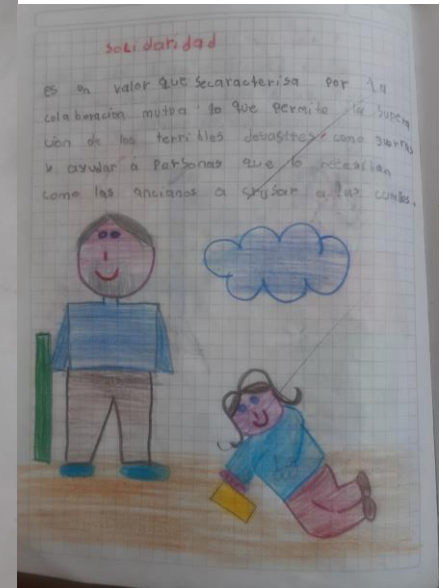 Solidaridad
es un valor que secaracterisa por la
colaboracion mutua lo que permite la supera
cion de los terribles debastres como guerras
y ayudar a Personas que lo necesitan
como las ancianos a crusar a las calles.